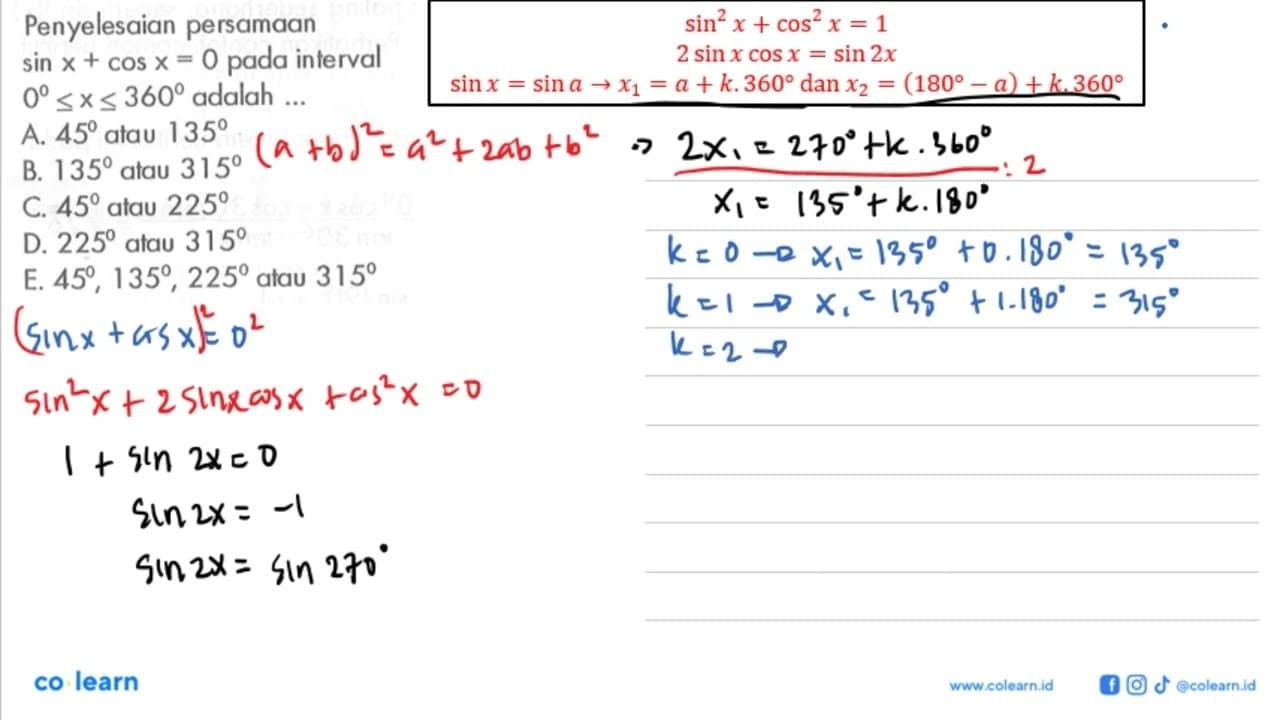 Penyelesaian persamaan
sin x + cos x = 0 pada interval
0⁰ ≤ x ≤ 360⁰ adalah ...
A. 45⁰ atau 135⁰
B. 135⁰ atau 315⁰
C. 45⁰ atau 225⁰
D. 225⁰ atau 315⁰
E. 45⁰, 135⁰, 225⁰ atau 315⁰
sin² x + cos² x = 1
2 sin x cos x = sin 2x
sin x = sin a → x₁ = a + k. 360° dan x₂ = (180° − a) + k. 360°
(a + b)² = a² + 2ab + b²
(sin x + cos x)² = 0²
sin² x + 2 sin x cos x + cos² x = 0
1 + sin 2x = 0
sin 2x = -1
sin 2x = sin 270°
→ 2x₁ = 270° + k . 360°
: 2
x₁ = 135° + k . 180°
k = 0 → x₁ = 135° + 0 . 180° = 135°
k = 1 → x₁ = 135° + 1 . 180° = 315°
k = 2 →
co learn
www.colearn.id
@colearn.id